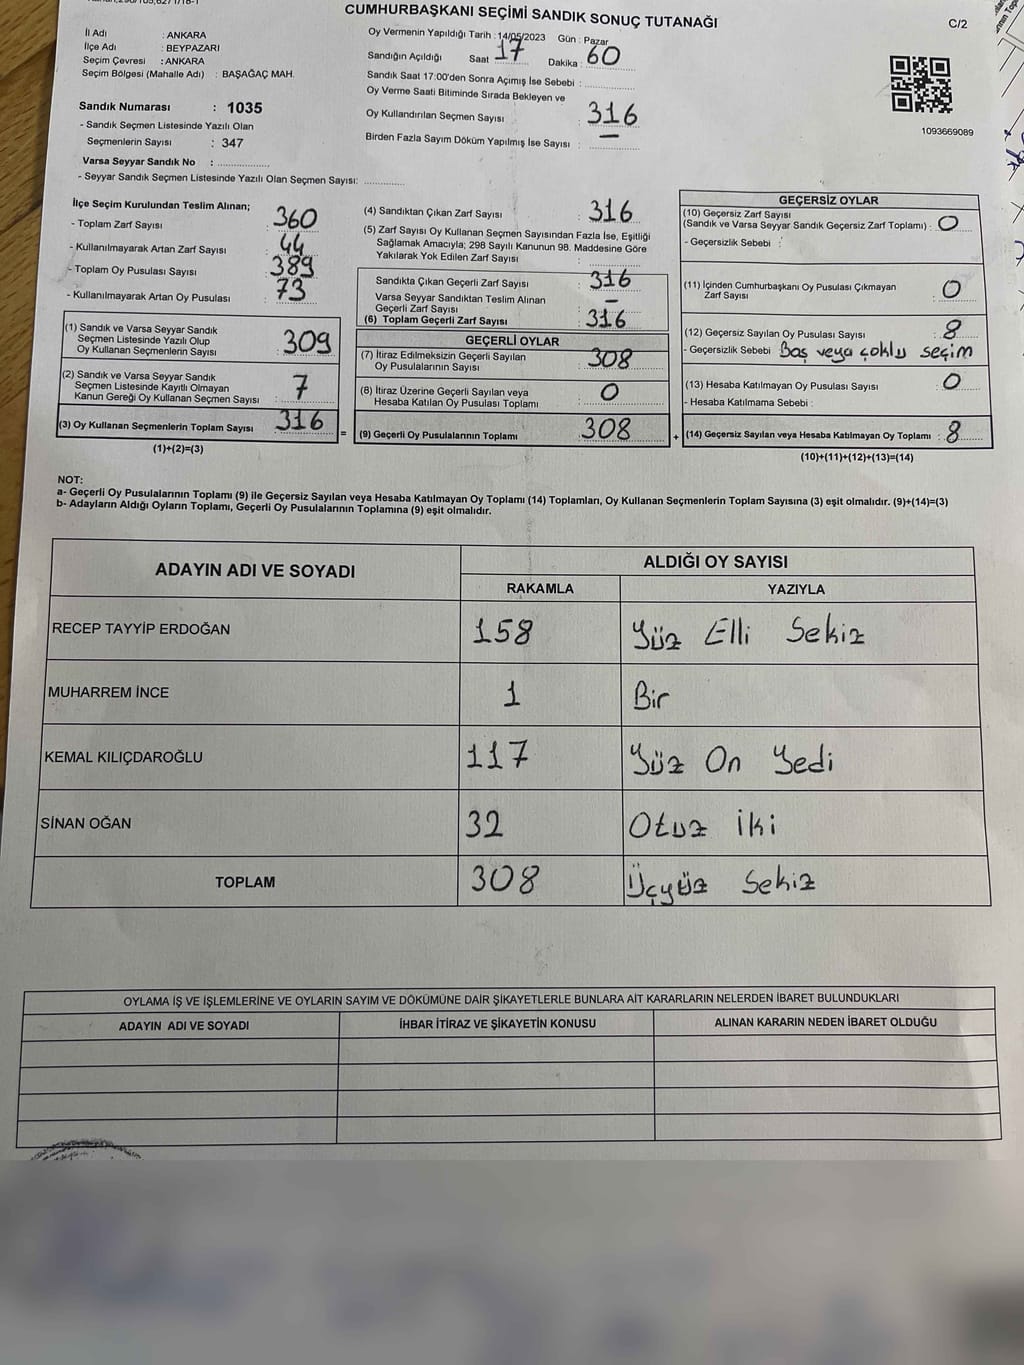 CUMHURBAŞKANI SEÇİMİ SANDIK SONUÇ TUTANAĞI
C/2
İl Adı : ANKARA
İlçe Adı : BEYPAZARI
Seçim Çevresi : ANKARA
Seçim Bölgesi (Mahalle Adı) : BAŞAĞAÇ MAH.
Sandık Numarası : 1035
- Sandık Seçmen Listesinde Yazılı Olan
Seçmenlerin Sayısı : 347
Varsa Seyyar Sandık No :
- Seyyar Sandık Seçmen Listesinde Yazılı Olan Seçmen Sayısı:
Oy Vermenin Yapıldığı Tarih : 14/05/2023 Gün : Pazar
Sandığın Açıldığı Saat 17 Dakika : 60
Sandık Saat 17:00'den Sonra Açımış İse Sebebi :
Oy Verme Saati Bitiminde Sırada Bekleyen ve
Oy Kullandırılan Seçmen Sayısı : 316
Birden Fazla Sayım Döküm Yapılmış İse Sayısı : —
1093669089
İlçe Seçim Kurulundan Teslim Alınan;
- Toplam Zarf Sayısı : 360
- Kullanılmayarak Artan Zarf Sayısı : 44
- Toplam Oy Pusulası Sayısı : 389
- Kullanılmayarak Artan Oy Pusulası : 73
(1) Sandık ve Varsa Seyyar Sandık
Seçmen Listesinde Yazılı Olup
Oy Kullanan Seçmenlerin Sayısı : 309
(2) Sandık ve Varsa Seyyar Sandık
Seçmen Listesinde Kayıtlı Olmayan
Kanun Gereği Oy Kullanan Seçmen Sayısı : 7
(3) Oy Kullanan Seçmenlerin Toplam Sayısı : 316
(1)+(2)=(3)
=
(4) Sandıktan Çıkan Zarf Sayısı : 316
(5) Zarf Sayısı Oy Kullanan Seçmen Sayısından Fazla İse, Eşitliği
Sağlamak Amacıyla; 298 Sayılı Kanunun 98. Maddesine Göre
Yakılarak Yok Edilen Zarf Sayısı :
Sandıkta Çıkan Geçerli Zarf Sayısı : 316
Varsa Seyyar Sandıktan Teslim Alınan
Geçerli Zarf Sayısı : —
(6) Toplam Geçerli Zarf Sayısı : 316
GEÇERLİ OYLAR
(7) İtiraz Edilmeksizin Geçerli Sayılan
Oy Pusulalarının Sayısı : 308
(8) İtiraz Üzerine Geçerli Sayılan veya
Hesaba Katılan Oy Pusulası Toplamı : 0
(9) Geçerli Oy Pusulalarının Toplamı : 308
+
GEÇERSİZ OYLAR
(10) Geçersiz Zarf Sayısı
(Sandık ve Varsa Seyyar Sandık Geçersiz Zarf Toplamı) : 0
- Geçersizlik Sebebi :
(11) İçinden Cumhurbaşkanı Oy Pusulası Çıkmayan
Zarf Sayısı : 0
(12) Geçersiz Sayılan Oy Pusulası Sayısı : 8
- Geçersizlik Sebebi Boş veya çoklu seçim
(13) Hesaba Katılmayan Oy Pusulası Sayısı : 0
- Hesaba Katılmama Sebebi :
(14) Geçersiz Sayılan veya Hesaba Katılmayan Oy Toplamı : 8
(10)+(11)+(12)+(13)=(14)
NOT:
a- Geçerli Oy Pusulalarının Toplamı (9) ile Geçersiz Sayılan veya Hesaba Katılmayan Oy Toplamı (14) Toplamları, Oy Kullanan Seçmenlerin Toplam Sayısına (3) eşit olmalıdır. (9)+(14)=(3)
b- Adayların Aldığı Oyların Toplamı, Geçerli Oy Pusulalarının Toplamına (9) eşit olmalıdır.
ADAYIN ADI VE SOYADI
ALDIĞI OY SAYISI
RAKAMLA YAZIYLA
RECEP TAYYİP ERDOĞAN 158 Yüz Elli Sekiz
MUHARREM İNCE 1 Bir
KEMAL KILIÇDAROĞLU 117 Yüz On Yedi
SİNAN OĞAN 32 Otuz İki
TOPLAM 308 Üçyüz Sekiz
OYLAMA İŞ VE İŞLEMLERİNE VE OYLARIN SAYIM VE DÖKÜMÜNE DAİR ŞİKAYETLERLE BUNLARA AİT KARARLARIN NELERDEN İBARET BULUNDUKLARI
ADAYIN ADI VE SOYADI İHBAR İTİRAZ VE ŞİKAYETİN KONUSU ALINAN KARARIN NEDEN İBARET OLDUĞU